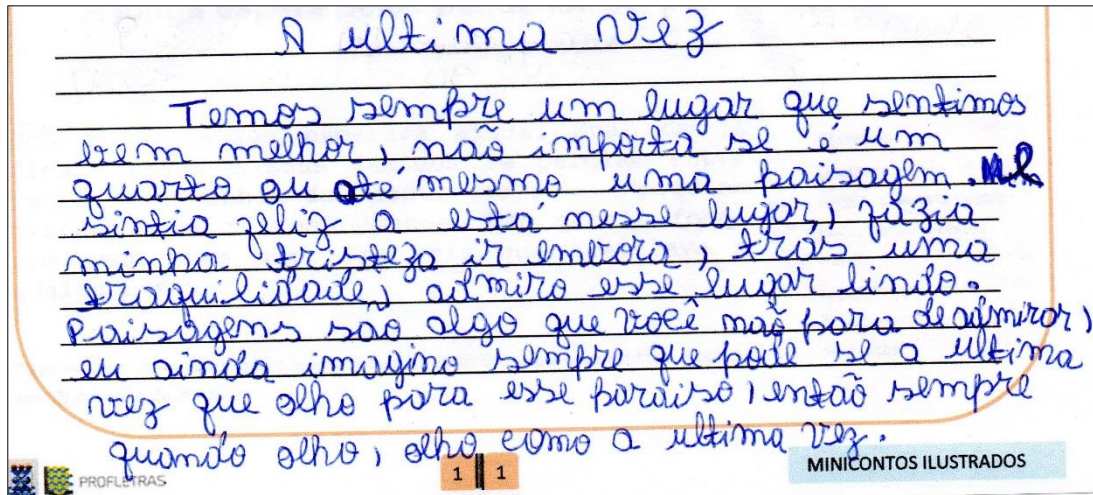 A ultima vez
Temos sempre um lugar que sentimos
bem melhor, não importa se é um
quarto ou até mesmo uma paisagem. Me
sintia feliz a está nesse lugar, fazia
minha tristeza ir embora, trás uma
traquilidade, admiro esse lugar lindo.
Paisagens são algo que você não para de admirar,
eu ainda imagino sempre que pode se a ultima
vez que olho para esse paraiso, então sempre
quando olho, olho como a ultima vez.
PROFLETRAS
1 1
MINICONTOS ILUSTRADOS